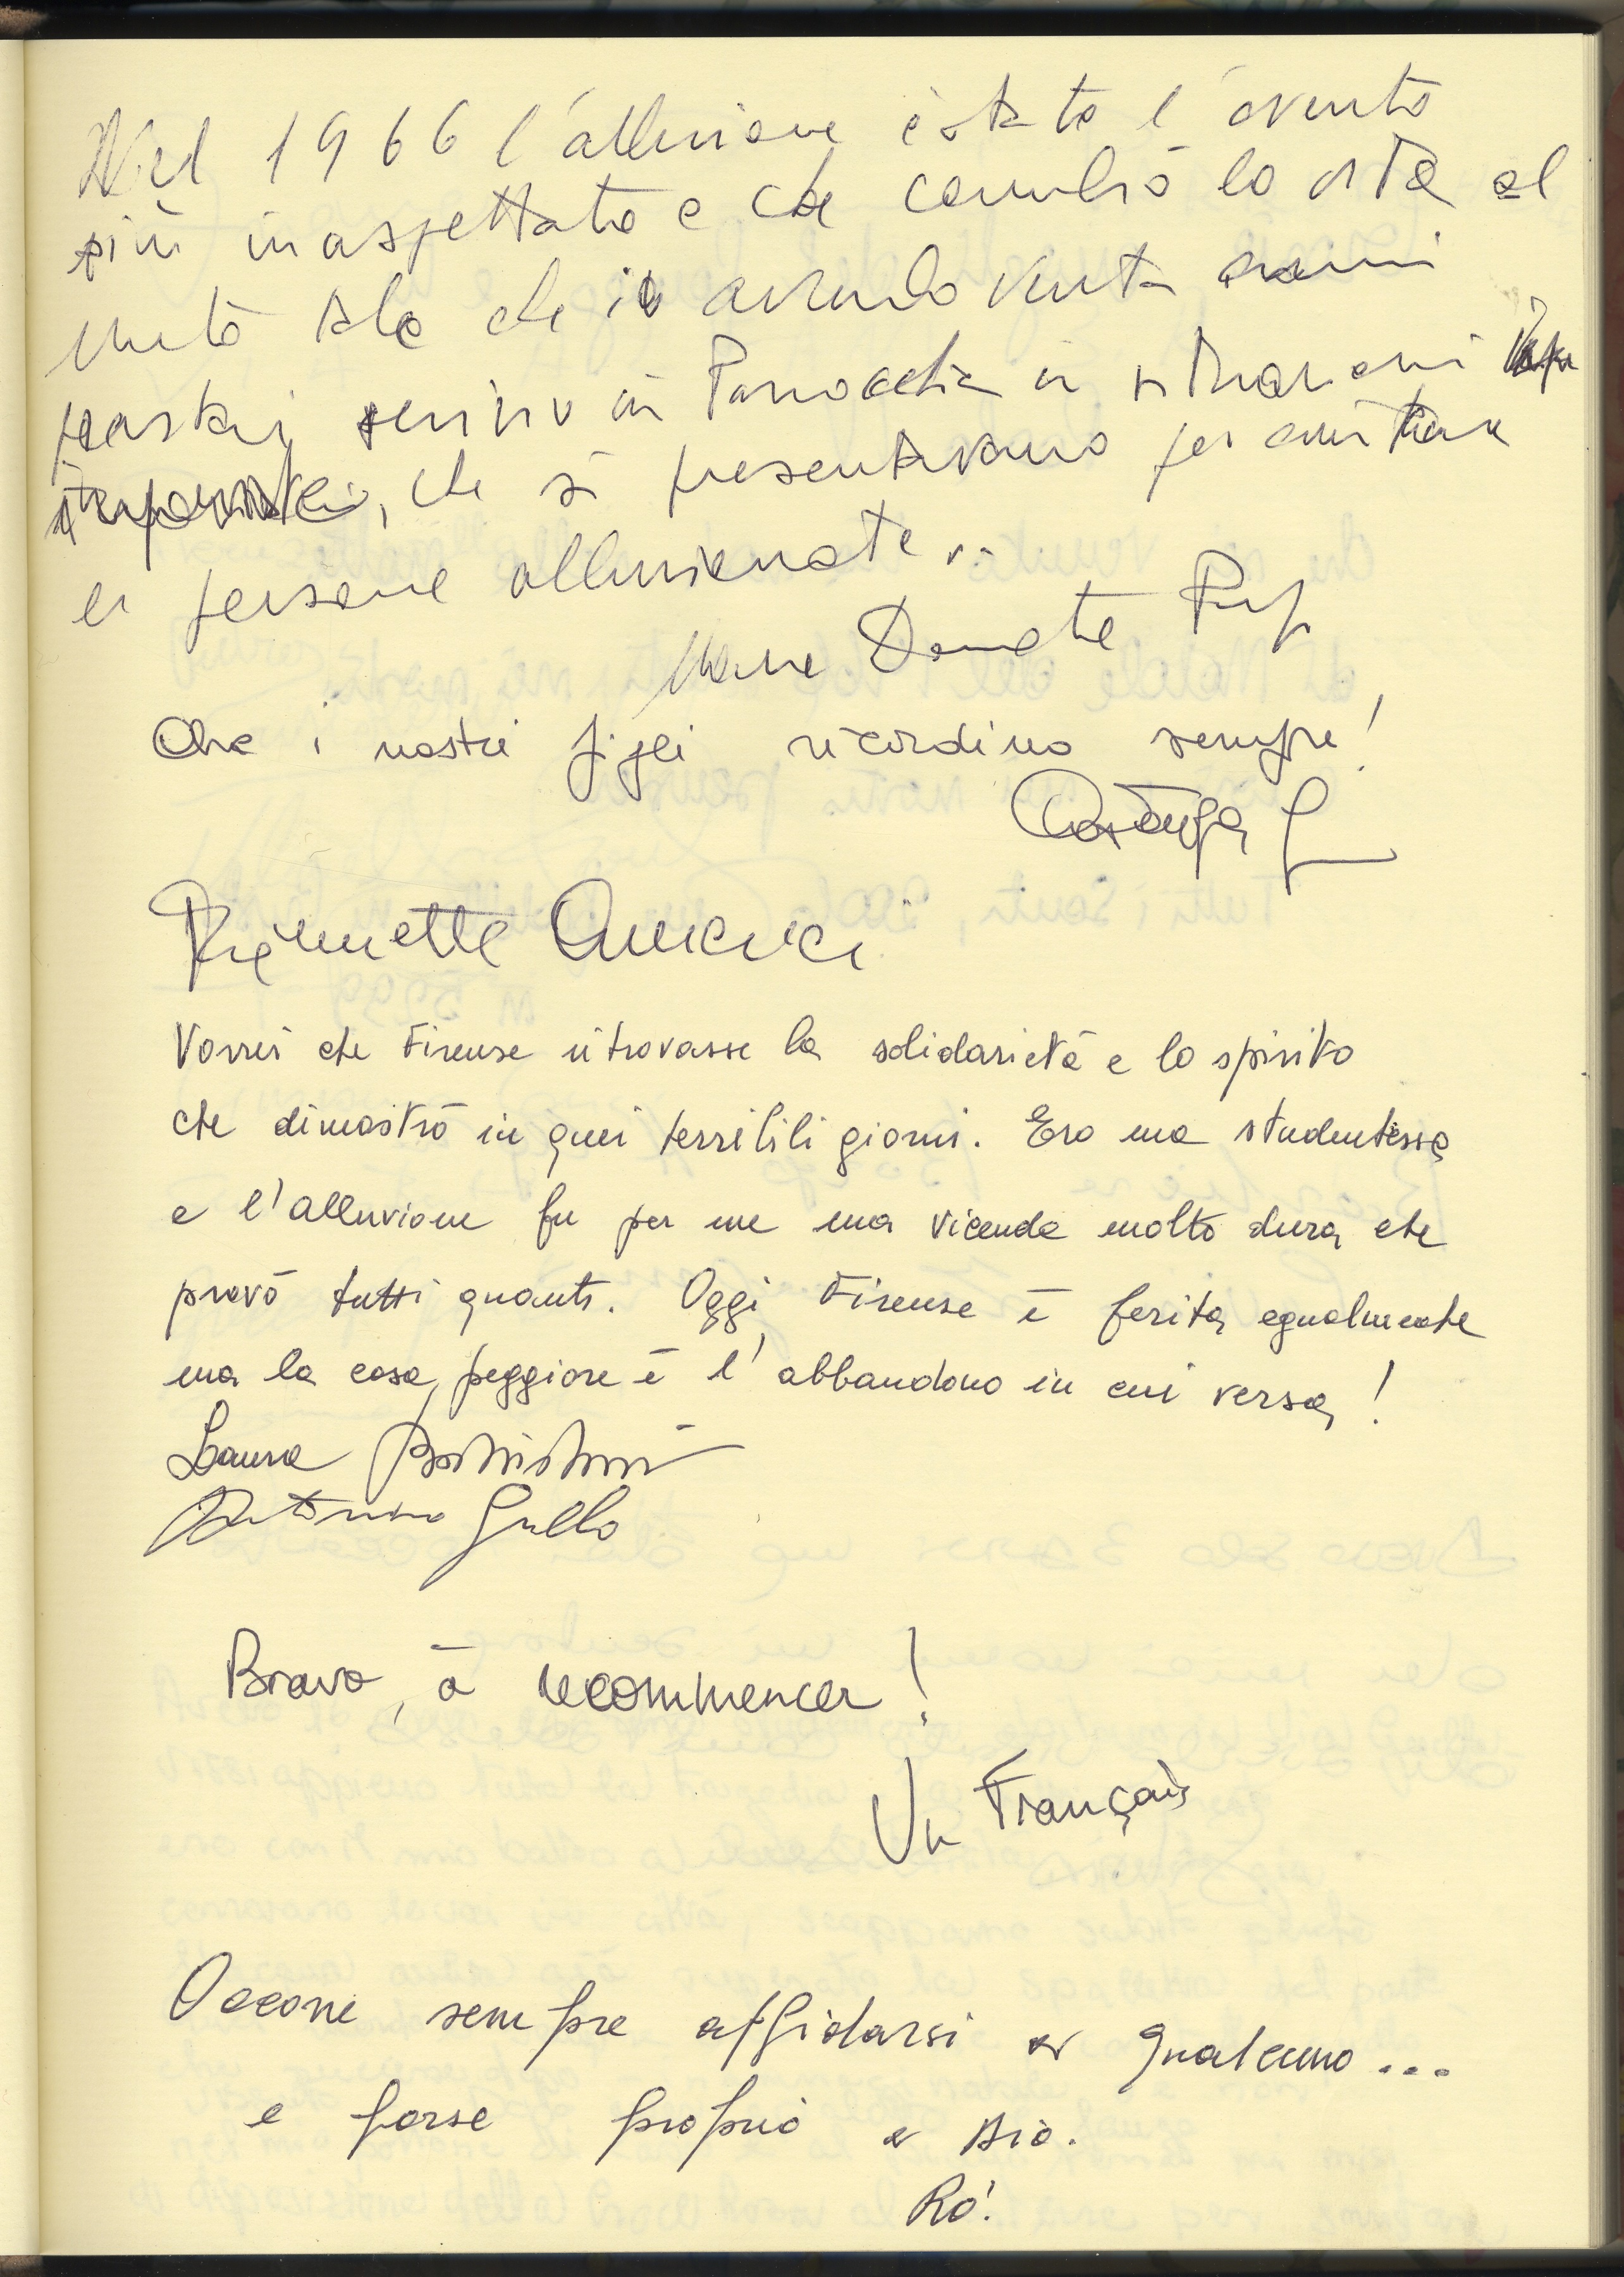 Nel 1966 l'alluvione è stato l'evento
più inaspettato e che cambiò la vita al
che io avendo venti anni
in Parrocchia in
, che si presentavano per
persone alluvionate..
Donate
Che i nostri figli ricordino sempre!
Vorrei che Firenze ritrovasse la solidarietà e lo spirito
che dimostrò in quei terribili giorni. Ero una studentessa
e l'alluvione fu per me una vicenda molto dura che
provò tutti quanti. Oggi Firenze è ferita egualmente
ma la cosa peggiore è l'abbandono in cui versa!
Laura
Antonino Gullo
Bravo, à recommencer!
Un Français
Occorre sempre affidarsi a qualcuno...
e forse proprio a Dio.
Ro'.